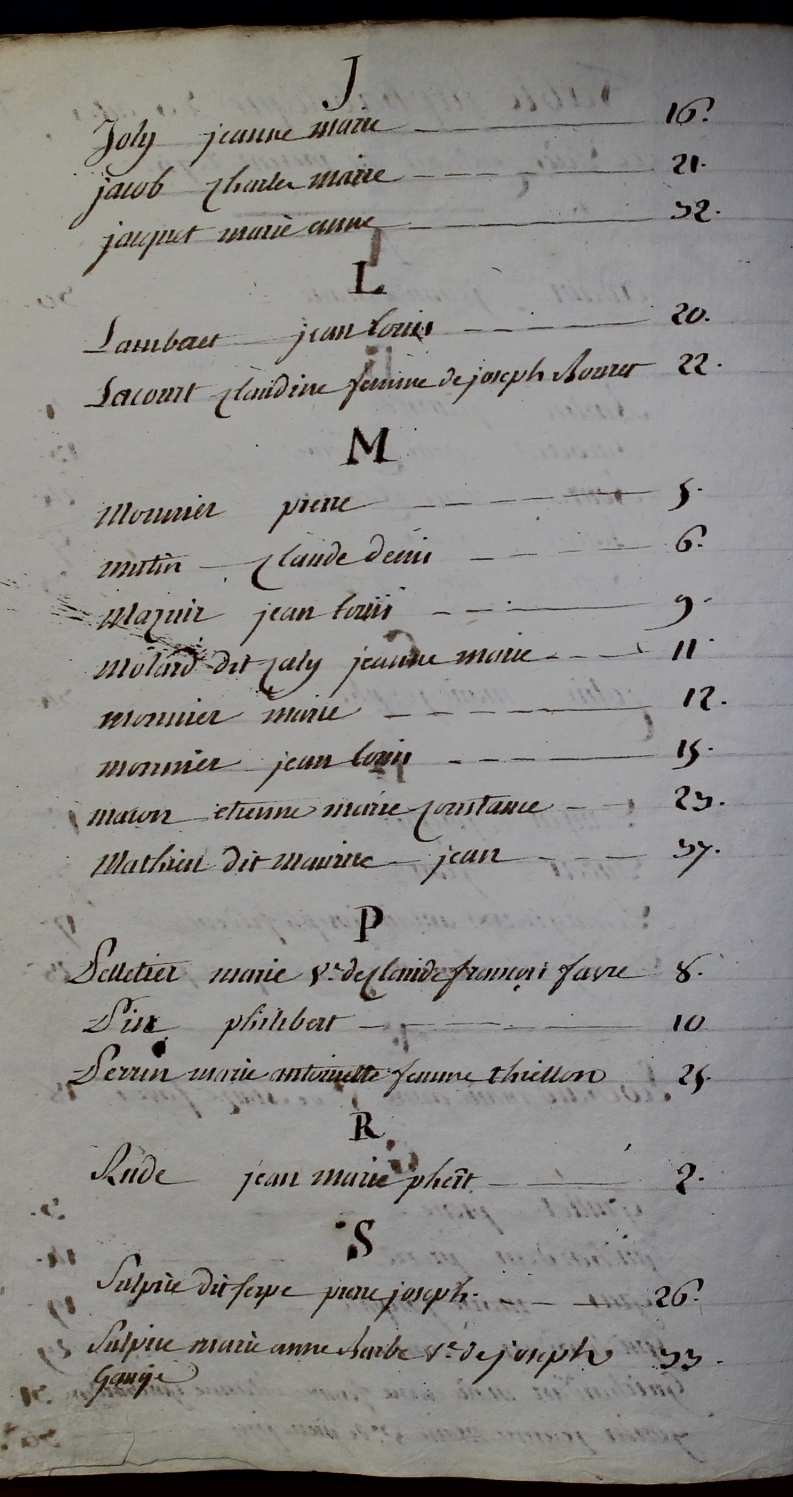 J
Joly jeanne marie 16.
jacob Charles marie 21.
jacquet marie anne 32.
L
Lambert jean louis 20.
Lacourt Claudine femme de joseph 22.
M
Monnier pierre 5.
mutin Claude denis 6.
Mazuir jean louis 9.
Molard dit Caly jeanne marie 11.
monnier marie 12.
monnier jean louis 15.
macon etienne marie Constance 23.
Mathieu dit maurice jean 37.
P
Pelletier marie Ve. de Claude françois favre 8.
philibert 10
Perrin marie antoinette femme thiellon 25.
R
Rude jean marie phert 2.
S
Sulpice dit serpe pierre joseph. 26.
Sulpice marie anne Barbe Ve. de joseph 33.